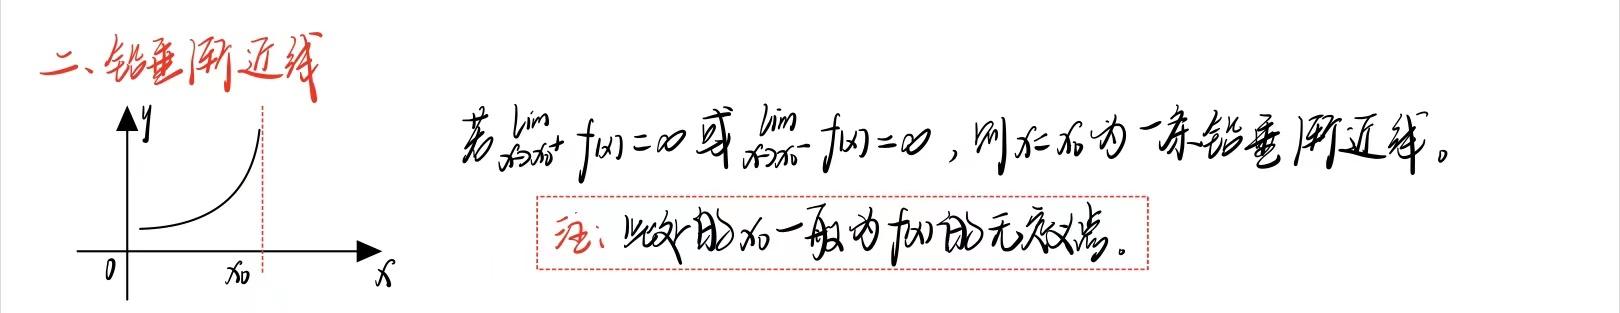 二、铅垂渐近线
y
若 lim x→x₀⁺ f(x)=∞ 或 lim x→x₀⁻ f(x)=∞，则 x=x₀ 为一条铅垂渐近线。
注：此处的 x₀ 一般为 f(x) 的无定义点。
0 x₀ x